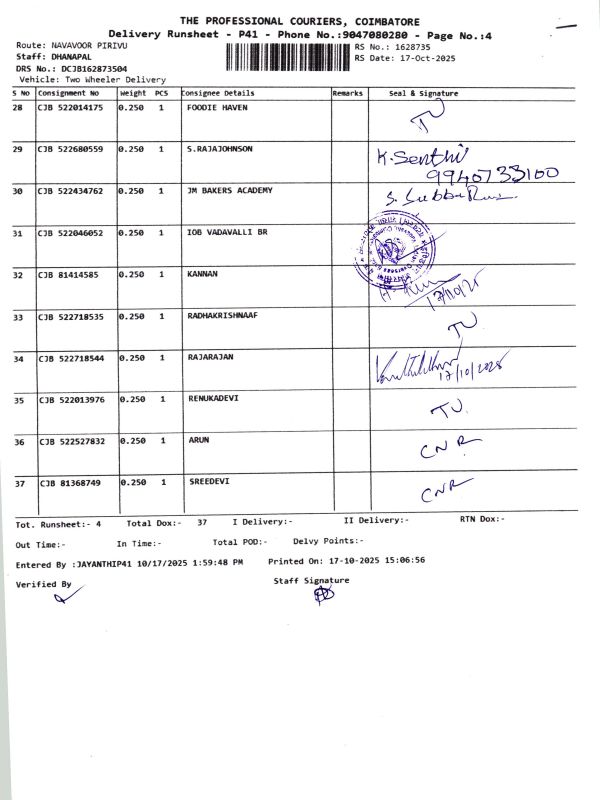 THE PROFESSIONAL COURIERS, COIMBATORE
Delivery Runsheet - P41 - Phone No.:9047080280 - Page No.:4
Route: NAVAVOOR PIRIVU RS No.: 1628735
Staff: DHANAPAL RS Date: 17-Oct-2025
DRS No.: DCJB162873504
Vehicle: Two Wheeler Delivery
S No Consignment No Weight PCS Consignee Details Remarks Seal & Signature
28 CJB 522014175 0.250 1 FOODIE HAVEN TU
29 CJB 522680559 0.250 1 S.RAJAJOHNSON K.Senthil
9940733100
30 CJB 522434762 0.250 1 JM BAKERS ACADEMY
31 CJB 522046052 0.250 1 IOB VADAVALLI BR
32 CJB 81414585 0.250 1 KANNAN 17/10/25
33 CJB 522718535 0.250 1 RADHAKRISHNAAF TU
34 CJB 522718544 0.250 1 RAJARAJAN 17/10/2025
35 CJB 522013976 0.250 1 RENUKADEVI TU.
36 CJB 522527832 0.250 1 ARUN CNR
37 CJB 81368749 0.250 1 SREEDEVI CNR
Tot. Runsheet:- 4 Total Dox:- 37 I Delivery:- II Delivery:- RTN Dox:-
Out Time:- In Time:- Total POD:- Delvy Points:-
Entered By :JAYANTHIP41 10/17/2025 1:59:48 PM Printed On: 17-10-2025 15:06:56
Verified By Staff Signature